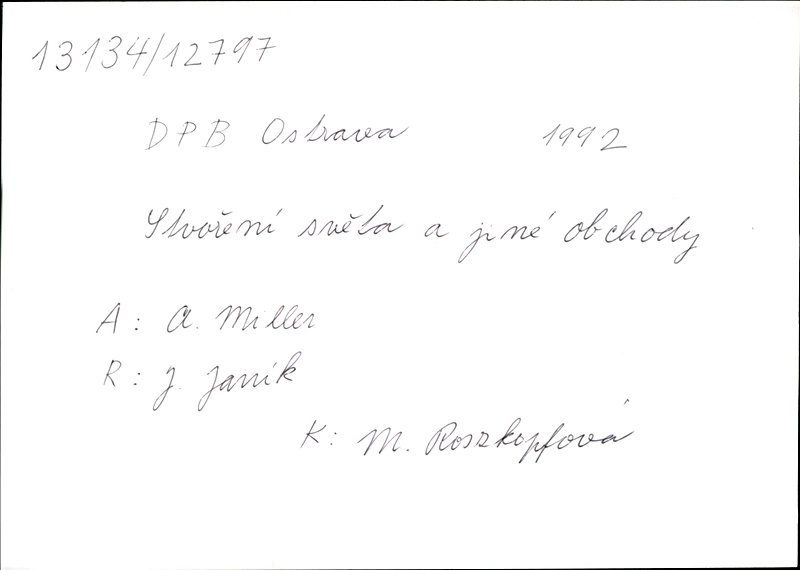 13134/12797
DPB Ostrava 1992
Stvoření světa a jiné obchody
A: A. Miller
R: J. Janík
K: M. Roszkopfová